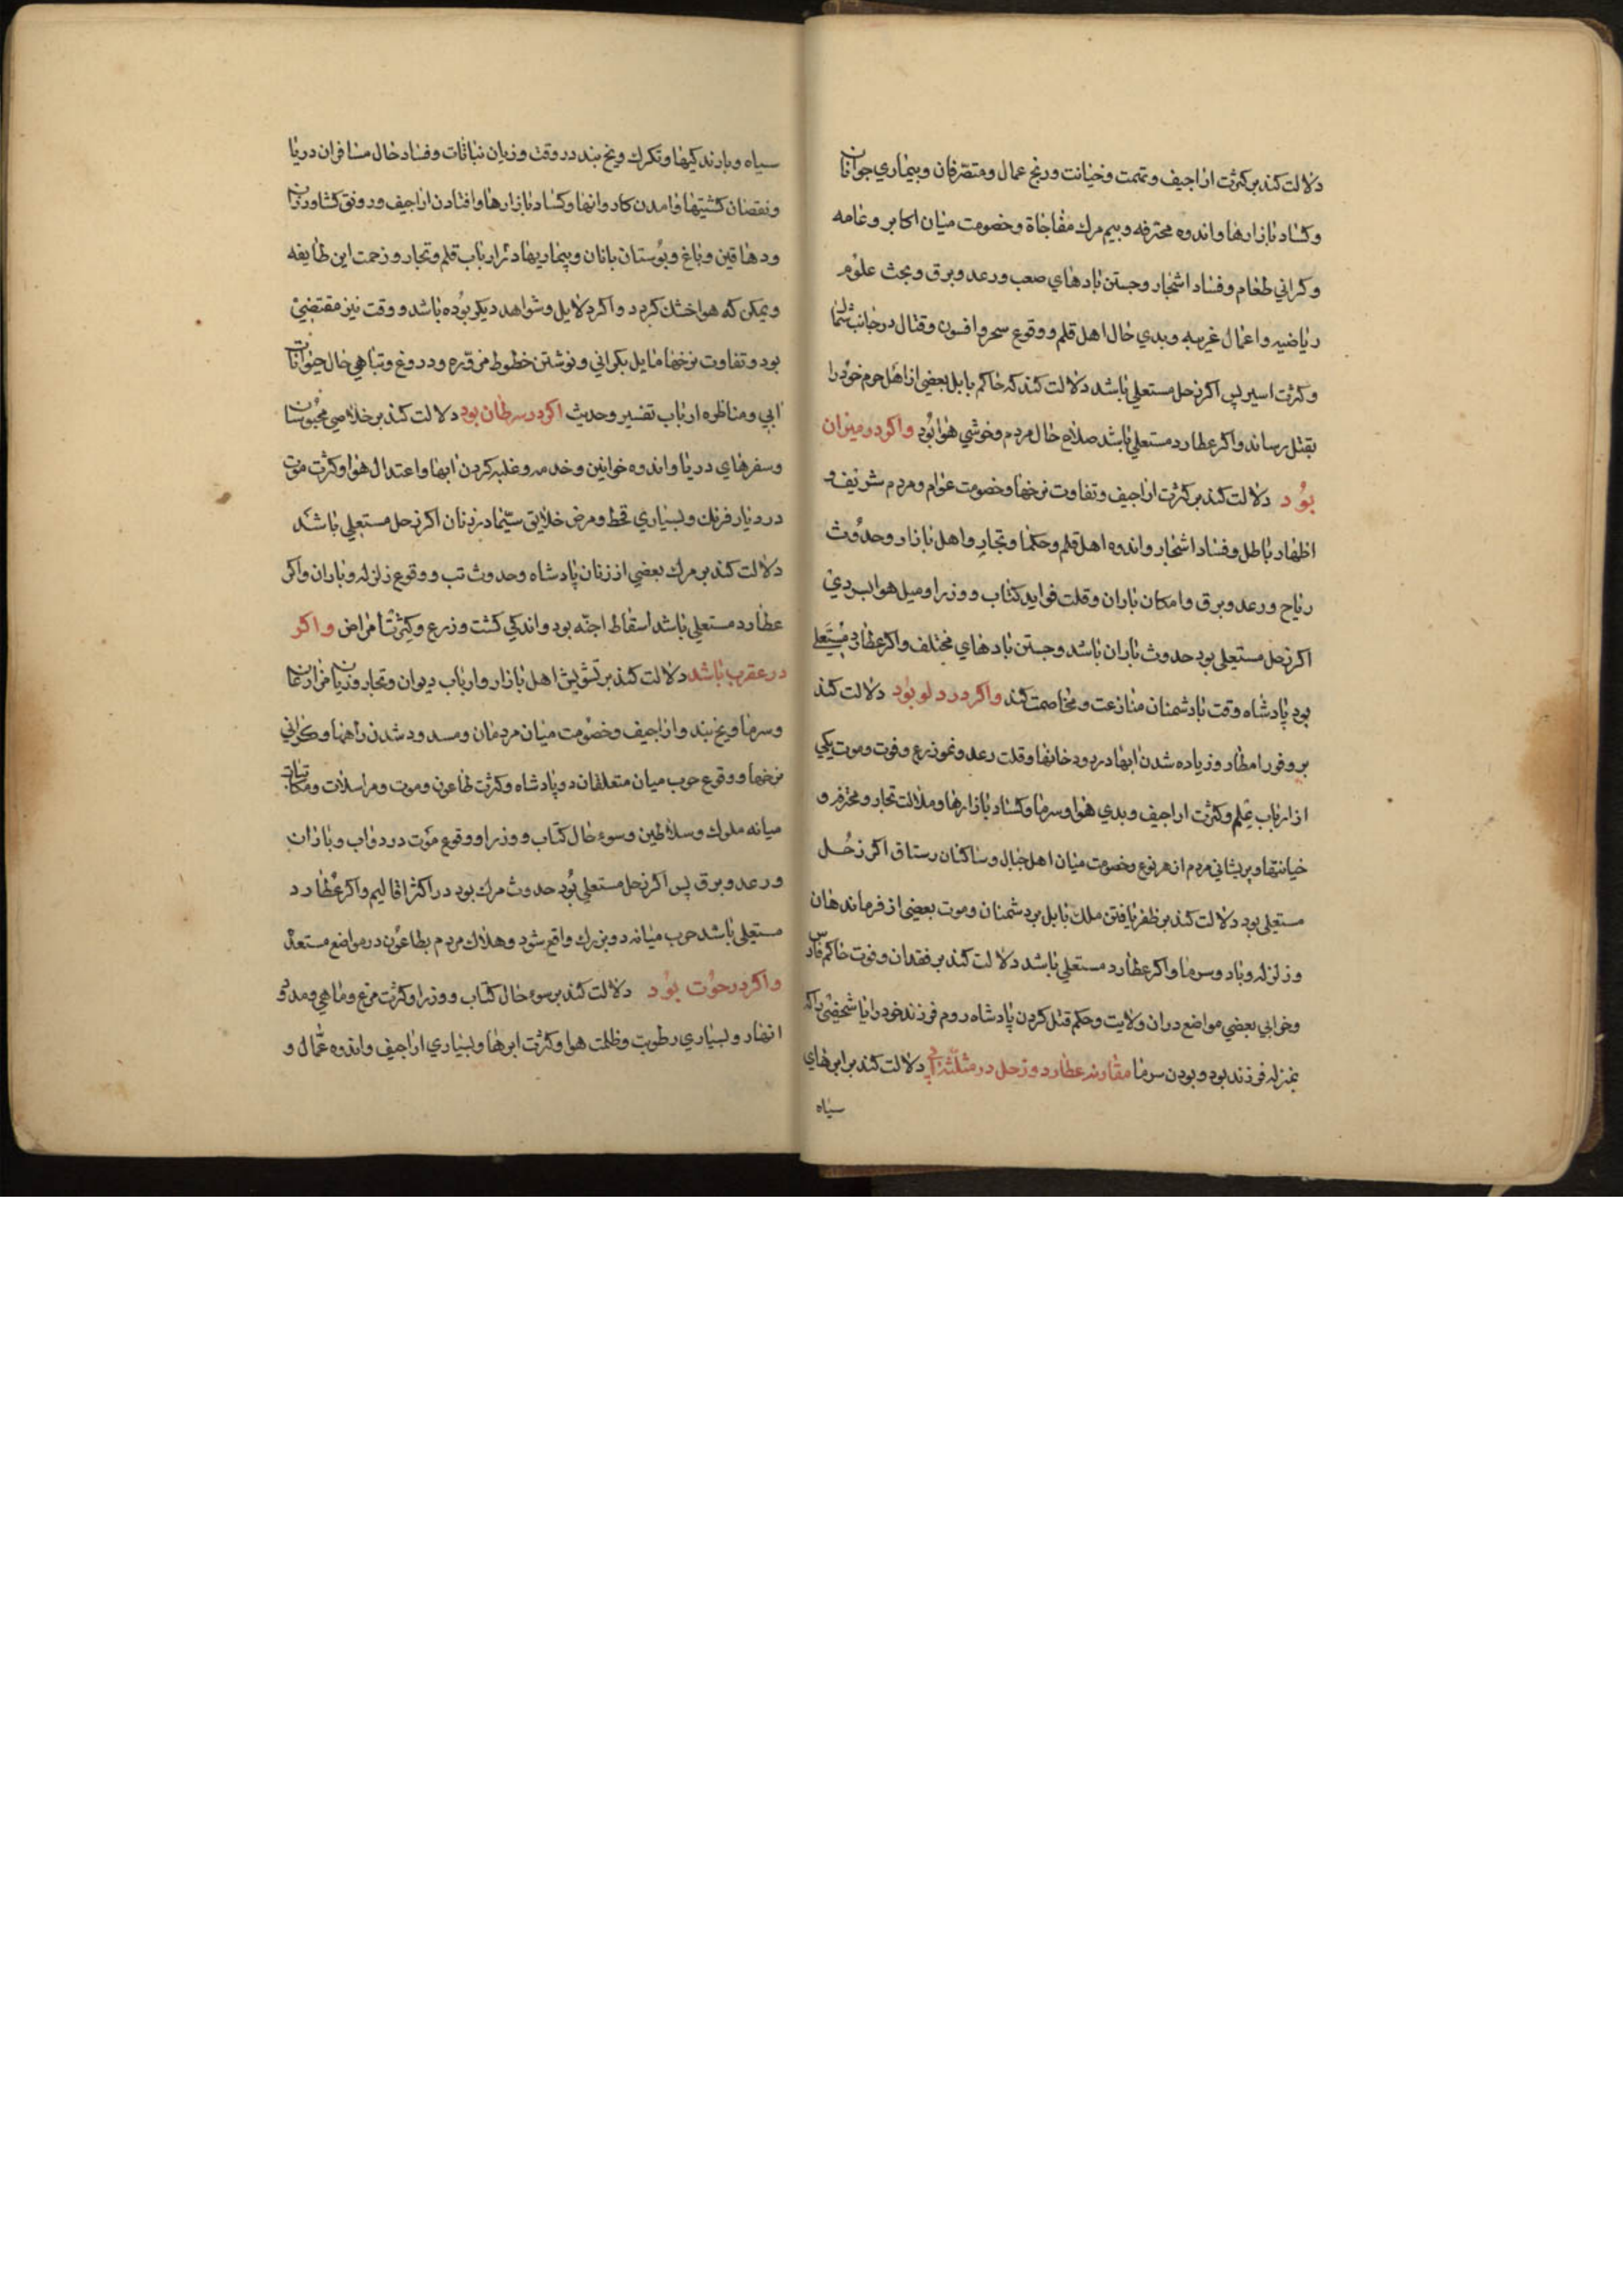 دلالت کند بر کثرت اراجیف و تهمت و خیانت و رنج عمال و متصرفان و بیماری جوانان
و کساد بازارها و اندوه محترفه و بیم مرک مفاجاة و خصومت میان اکابر و عامه
و کرانی طعام و فساد اشجار و جستن بادهای صعب و رعد و برق و بحث علوم
ریاضیه و اعمال غریبه و بدی حال اهل قلم و وقوع سحر و افسون و قتال در جانب شمال
و کثرت اسیر پس اکر زحل مستعلی باشد دلالت کند که حاکم بابل بعضی از اهل حرم خود را
بقتل رساند و اکر عطارد مستعلی باشد صلاح حال مردم و خوشی هوا بود و اکر در میزان
بود دلالت کند بر کثرت اراجیف و تفاوت نرخها و خصومت عوام و مردم شریف و
اظهار باطل و فساد اشجار و اندوه اهل قلم و حکما و تجار و اهل بازار و حدوث
ریاح و رعد و برق و امکان باران و قلت فواید کتاب و وزرا و میل هوا بسردی
اکر زحل مستعلی بود حدوث باران باشد و جستن بادهای مختلف و اکر عطارد مستعلی
بود پادشاه وقت با دشمنان منازعت و مخاصمت کند و اکر در دلو بود دلالت کند
بر وفور امطار و زیاده شدن ابها در رودخانها و قلت رعد و نمو زرع و فوت و موت یکی
از ارباب علم و کثرت اراجیف و بدی هوا و سرما و کساد بازارها و ملالت تجار و محترفه و
خیانتها و پریشانی مردم از هر نوع و خصومت میان اهل جبال و ساکنان رستاق اکر زحل
مستعلی بود دلالت کند بر ظفر یافتن ملک بابل بر دشمنان و موت بعضی از فرماندهان
و زلزله و باد و سرما و اکر عطارد مستعلی باشد دلالت کند بر فقدان و فوت حاکم فارس
و خرابی بعضی مواضع در ان ولایت و حکم قتل کردن پادشاه روم فرزند خود را یا شخصی را که
بمنزله فرزند بود و بودن سرما مقارنه عطارد و زحل در مثلثه ابی دلالت کند بر ابرهای
سیاه
سیاه و بارندکیها و تکرک و یخ بند در وقت و زیان نباتات و فساد حال مسافران دریا
و نقصان کشتیها و امدن کاروانها و کساد بازارها و افتادن اراجیف و رونق کشاورزان
و دهاقین و باغ و بوستان بانان و بیماریها در ارباب قلم و تجار و زحمت این طایفه
و یمکن که هوا خشک کردد و اکر دلایل و شواهد دیکر بوده باشد و وقت نیز مقتضی
بود و تفاوت نرخها مایل بکرانی و نوشتن خطوط مزوره و دروغ و تباهی حال حیوانات
ابی و مناظره ارباب تفسیر و حدیث اکر در سرطان بود دلالت کند بر خلاصی محبوسان
و سفرهای دریا و اندوه خواتین و خدمه و غلبه کردن ابها و اعتدال هوا و کثرت موت
در دیار فرنک و بسیاری قحط و مرض خلایق سیما در زنان اکر زحل مستعلی باشد
دلالت کند بر مرک بعضی از زنان پادشاه و حدوث تب و وقوع زلزله و باران و اکر
عطارد مستعلی باشد اسقاط اجنه بود و اندکی کشت و زرع و کثرت امراض و اکر
در عقرب باشد دلالت کند بر تشویش اهل بازار و ارباب دیوان و تجار و زیان مزارعان
و سرما و یخ بند و اراجیف و خصومت میان مردمان و مسدود شدن راهها و کرانی
نرخها و وقوع حرب میان متعلقان دو پادشاه و کثرت طاعون و موت و مراسلات و مکاتبات
میانه ملوک و سلاطین و سوء حال کتاب و وزرا و وقوع موت در دواب و باران
و رعد و برق پس اکر زحل مستعلی بود حدوث مرک بود در اکثر اقالیم و اکر عطارد
مستعلی باشد حرب میانه دو بزرک واقع شود و هلاک مردم بطاعون در مواضع مستعد
و اکر در حوت بود دلالت کند بر سوء حال کتاب و وزرا و کثرت مرغ و ماهی و مد و
انهار و بسیاری رطوبت و ظلمت هوا و کثرت ابرها و بسیاری اراجیف و اندوه عمال و